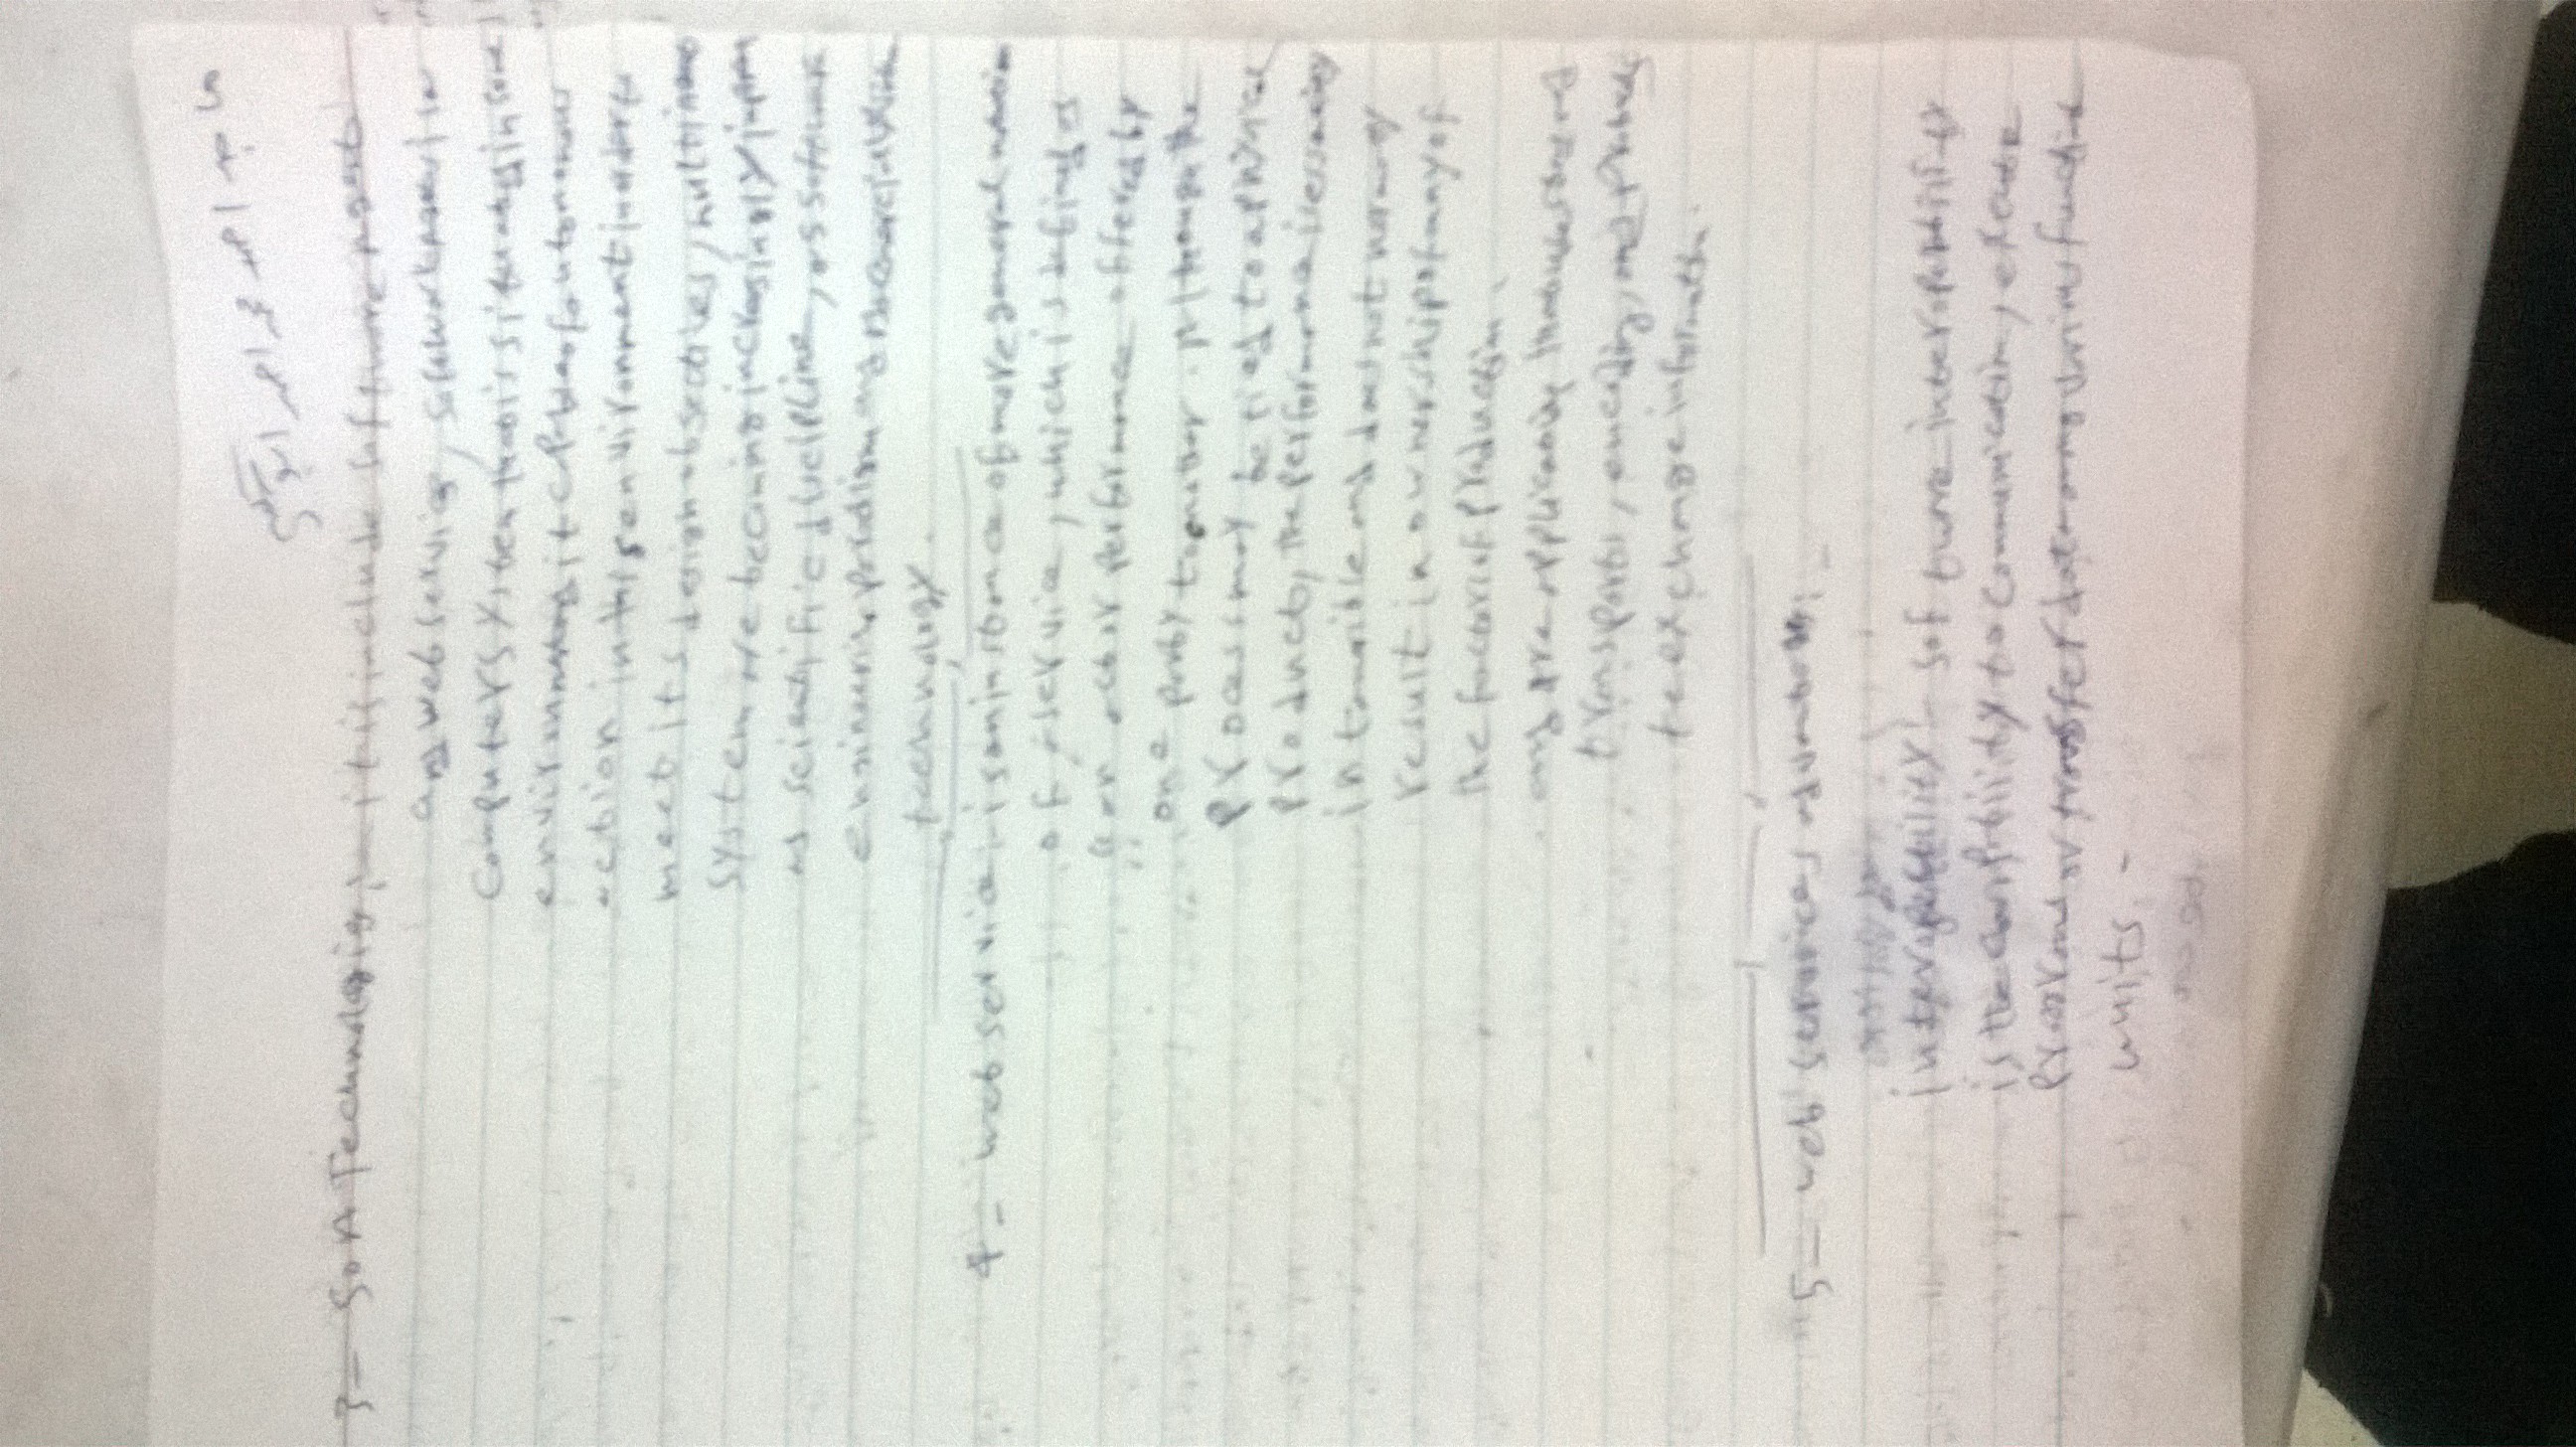 احمد محمد احمد
3- SOA Technologies:- it is include software agent
and web service, software agent is a
computer system that is situated in some
environment it capable of autonomous
action in this environment in order to
meet its design objectives, multi
system are becoming increasingly
as scientific discipline, as software
engineering paradigm and as commercial
technology.
4- web service:- is an instance of more general notion
of service, which is defined as
"an act or performance offered by
one party to another. Although the
process may be tied to a physical
product, the performance is
intangible and does not normally
result in ownership of any of
the factors of production.
and are application that understand
transports, encoding, and
to exchange information.
5- web services advantages:-
interoperability:- software interoperability
is the capability to communication, execute
programs or transfer data among various function
units.